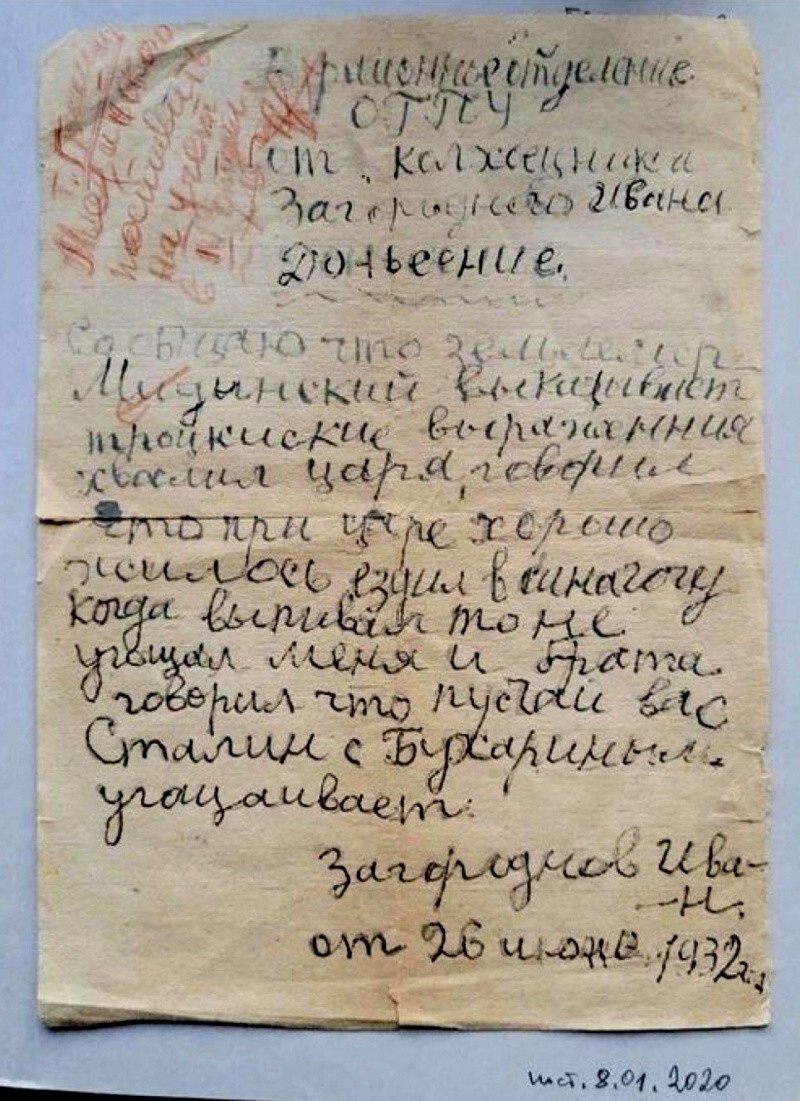 В раионное отделение
ОГПУ
от колхозника
Загороднего Ивана
Доньесение.
Сообщаю что землемер
Мидынский выказывает
троцкиские выражения
хвалил царя, говорил
что при царе хорошо
жилось ездил в синагогу
когда выпивал то не
угощал меня и брата
говорил что пускай вас
Сталин с Бухариным
угощаивает.
Загороднов Ива-
-н.
от 26 июня 1932 г.
на учет
в IV
8.01.2020